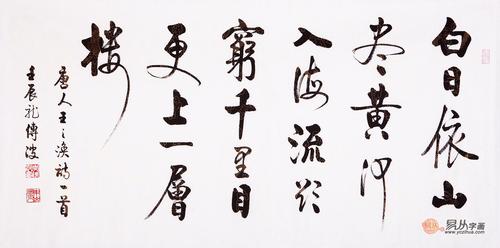 白日依山
尽黄河
入海流欲
窮千里目
更上一層
楼
唐人王之涣诗一首
壬辰龙傅波
易从字画
www.yczihua.com